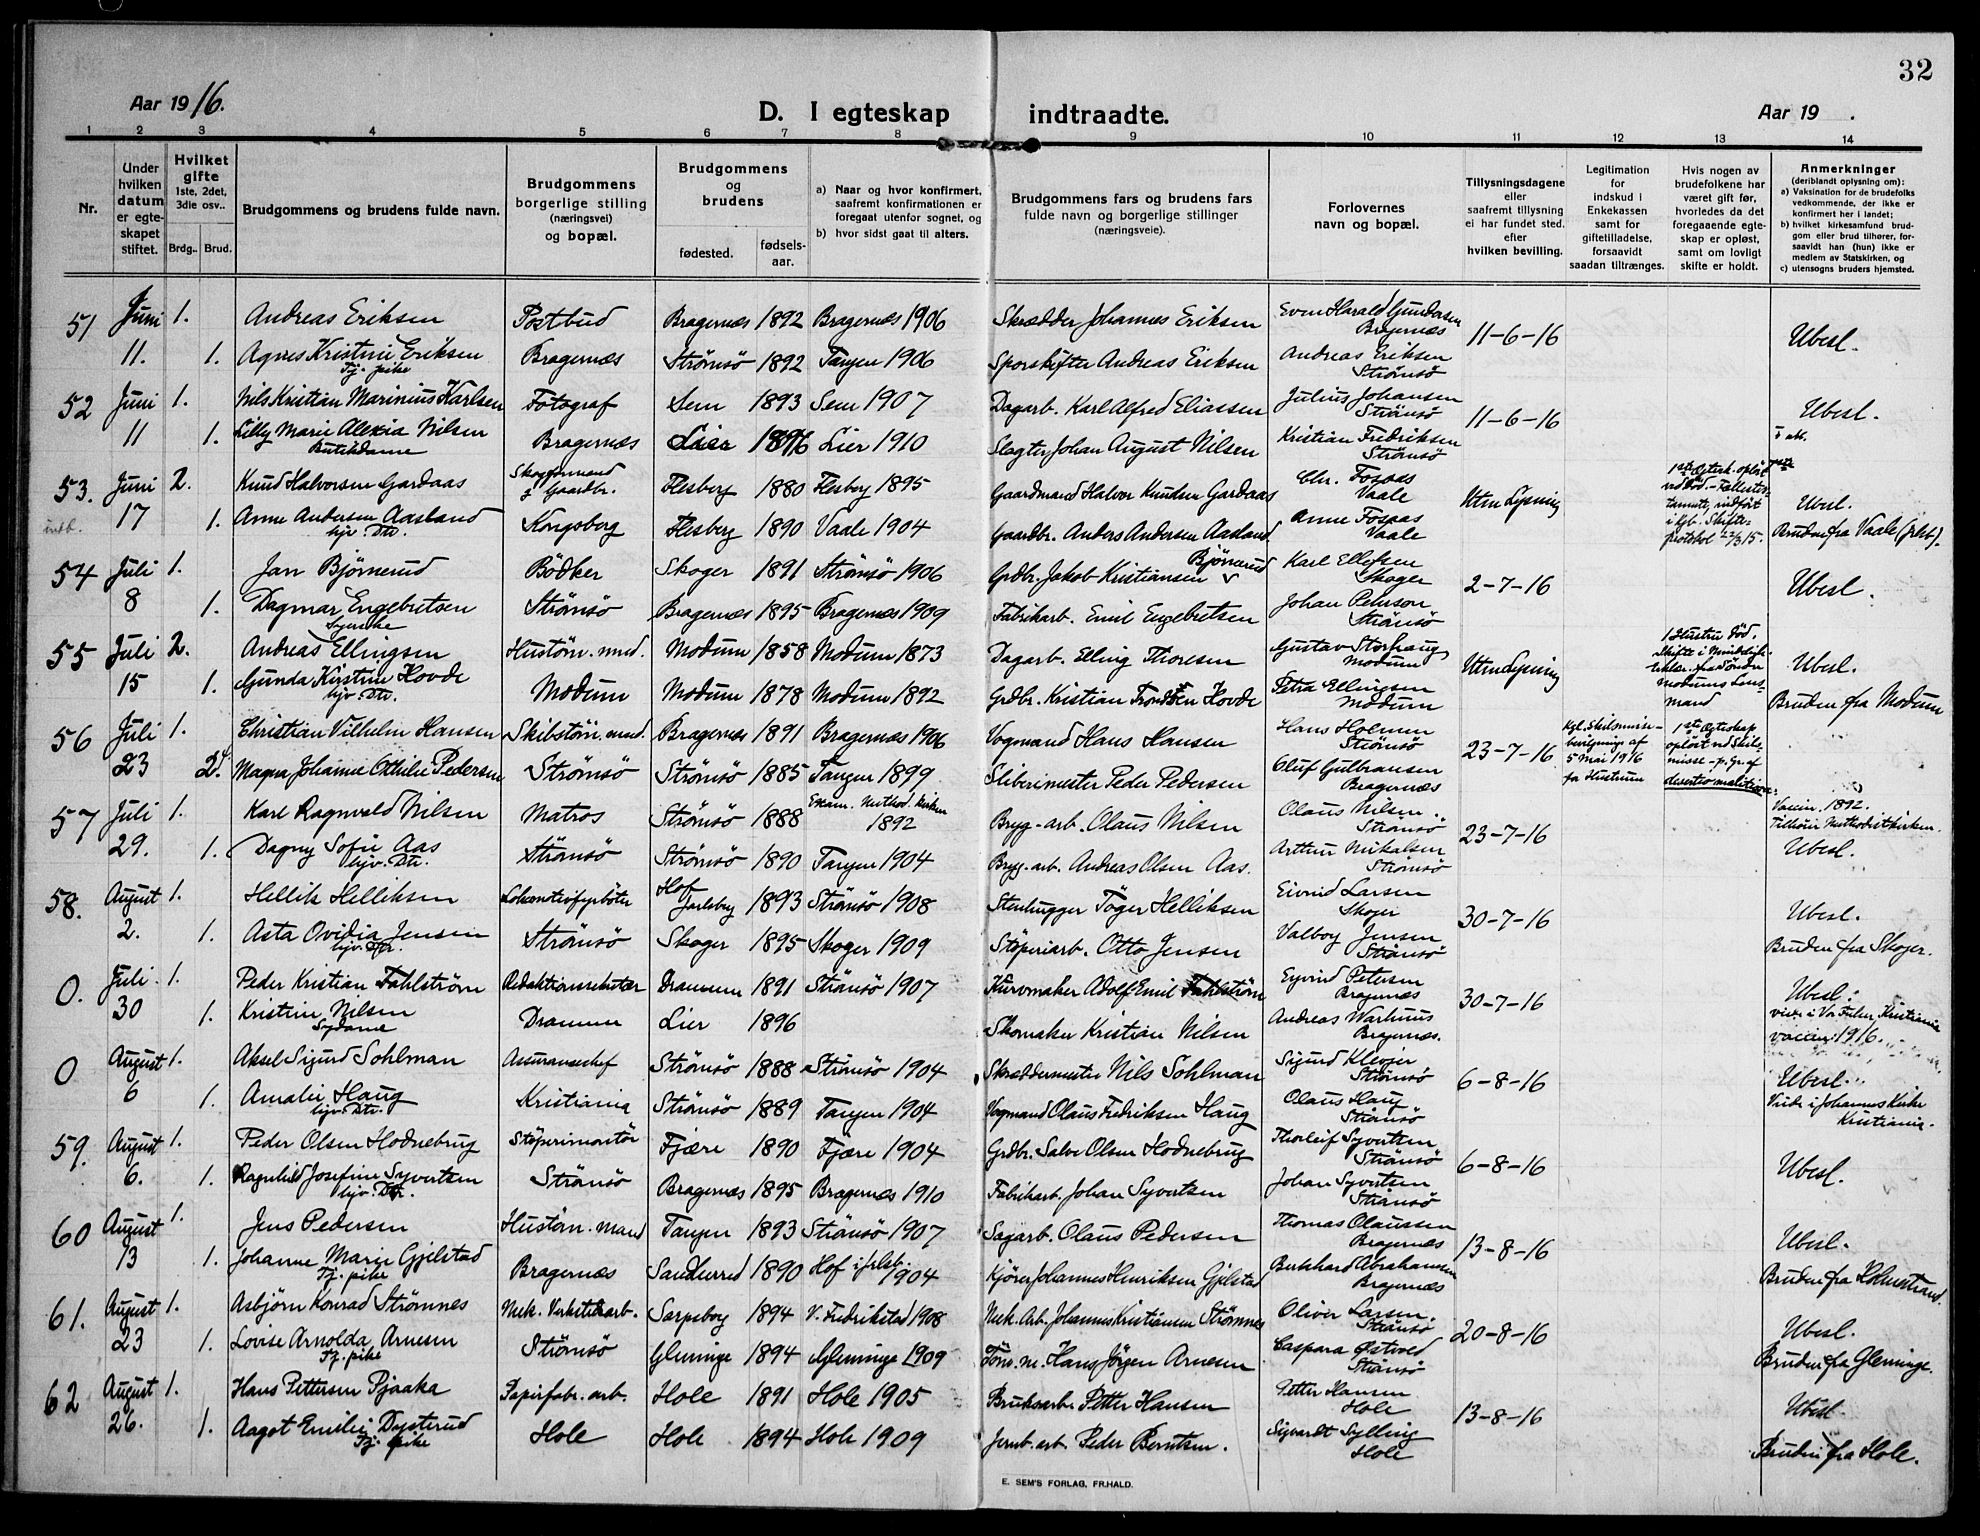 32
Aar 1916.
D. I egteskap indtraadte.
Aar 19 .
1 2 3 4 5 6 7 8 9 10 11 12 13 14
Nr.
Under hvilken datum er egteskapet stiftet.
Hvilket gifte 1ste, 2det, 3die osv..
Brdg.. Brud.
Brudgommens og brudens fulde navn.
Brudgommens borgerlige stilling (næringsvei) og bopæl.
Brudgommens og brudens
fødested. fødselsaar.
a) Naar og hvor konfirmert, saafremt konfirmationen er foregaat utenfor sognet, og
b) hvor sidst gaat til alters.
Brudgommens fars og brudens fars fulde navn og borgerlige stillinger (næringsveie).
Forlovernes navn og bopæl.
Tillysningsdagene eller saafremt tillysning ei har fundet sted. efter hvilken bevilling.
Legitimation for indskud i Enkekassen samt for giftetilladelse, forsaavidt saadan tiltrænges.
Hvis nogen av brudefolkene har været gift før, hvorledes da det foregaaende egteskap er opløst, samt om lovligt skifte er holdt.
Anmerkninger (deriblandt oplysning om):
a) Vaksination for de brudefolks vedkommende, der ikke er konfirmert her i landet;
b) hvilket kirkesamfund brudgom eller brud tilhører, forsaavidt han (hun) ikke er medlem av Statskirken, og
c) utensogns bruders hjemsted.
51 Juni 1. Andreas Eriksen Postbud Bragernæs 1892 Bragernæs 1906 Skrædder Johannes Eriksen Even Harald Gundersen Bragernæs 11-6-16 Ubesl.
11. 1. Agnes Kristine Eriksen Tj. pike Bragernæs Strömsö 1892 Tangen 1906 Sporskifter Andreas Eriksen Andreas Eriksen Strömsö
52 Juni 1. Nils Kristian Marinius Karlsen Fotograf Sem 1893 Sem 1907 Dagarb. Karl Alfred Eliassen Julius Johansen Strömsö 11-6-16 Ubesl.
11 1. Lilly Marie Alexia Nilsen Butikdame Bragernæs Lier 1896 Lier 1910 Slagter Johan August Nilsen Kristian Fredriksen Strömsö
53. Juni 2. Knud Halvorsen Gardaas Gaardbr. Flesberg 1880 Flesberg 1895 Gaardmand Halvor Knudsen Gardaas Chr. Fospas Vaale Uten Lysning Ubesl.
17 1. Anne Andersen Aasland hjv. Dtr. Kongsberg Flesberg 1890 Vaale 1904 Gaardbr. Anders Andersen Aasland Anne Fospas Vaale Bruden fra Vaale
54 Juli 1. Jan Björnerud Bödker Skoger 1891 Strömsö 1906 Grdbr. Jakob Kristiansen Björnerud Karl Ellefsen Skoger 2-7-16 Ubesl.
8 1. Dagmar Engebretsen Syerske Strömsö Bragernæs 1895 Bragernæs 1909 Fabrikarb. Emil Engebretsen Johan Peterson Strömsö
55 Juli 2. Andreas Ellingsen Hustöm. md. Modum 1858 Modum 1873 Dagarb. Elling Thoresen Gustav Storhaug Modum Uten Lysning 1 Hustru död. Ubesl.
15 1. Gunda Kirstine Hovde hjv. Dtr. Modum Modum 1878 Modum 1892 Grdbr. Kristian Trondsen Hovde Petra Ellingsen Modum Bruden fra Modum
56 Juli 1. Christian Vilhelm Hansen Skibstöm. md. Bragernæs 1891 Bragernæs 1906 Vogmand Hans Hansen Hans Holmen Strömsö 23-7-16 Kgl. Skilsmissebevilgning af 5 Mai 1916 for Hustruen 1ste Egteskap oplöst ved Skilsmisse p. Gr. af desertio malitiosa
23 2. Magna Johanne Othilie Pedersen Strömsö Strömsö 1885 Tangen 1899 Sliberimester Peder Pedersen Oluf Gulbransen Bragernæs
57 Juli 1. Karl Ragnvald Nilsen Matros Strömsö 1888 Exam. Method. kirken 1892 Bryg-arb. Olaus Nilsen Olaus Nilsen Strömsö 23-7-16 Vaccin. 1892. Tilhörer Methodistkirken.
29. 1. Dagny Sofie Aas hjv. Dtr. Strömsö Strömsö 1890 Tangen 1904 Bryg-arb. Andreas Olsen Aas. Arthur Mikalsen Strömsö Ubesl.
58. August 1. Hellik Helliksen Lokomotivfyrböter Hof Jarlsberg 1893 Strömsö 1908 Stenhugger Töger Helliksen Eivind Larsen Skoger 30-7-16 Ubesl.
2. 1. Asta Ovidia Jensen hjv. Dtr. Strömsö Skoger 1895 Skoger 1909 Stöperiarb. Otto Jensen Valborg Jensen Strömsö Bruden fra Skoger.
0. Juli 1. Peder Kristian Fahlström Redaktionssekretær Drammen 1891 Strömsö 1907 Kurvmaker Adolf Emil Fahlström Eyvind Petersen Bragernæs 30-7-16 Ubesl. viet i Vor Frelser, Kristiania
30 1. Kristine Nilsen Sydame Drammen Lier 1896 Skomaker Kristian Nilsen Andreas Warhuus Bragernæs. vaccin: 1916.
0 August 1. Aksel Sigurd Sohlman Assuransechef Strömsö 1888 Strömsö 1904 Skræddermester Nils Sohlman Sigurd Klevjer Strömsö 6-8-16 Ubesl.
6 1. Amalie Haug hjv. Dtr. Kristiania Strömsö 1889 Tangen 1904 Vogmand Olaus Fredriksen Haug Olaus Haug Strömsö Viede i Johannes Kirke Kristiania.
59. August 1. Peder Olsen Hodnebrug Stöperimontör Fjære 1890 Fjære 1904 Grdbr. Salve Olsen Hodnebrug Thorleif Syvertsen Strömsö 6-8-16 Ubesl.
6. 1. Ragnhild Josefine Syvertsen hjv. Dtr. Strömsö Bragernæs 1895 Bragernæs 1910 Fabrikarb. Johan Syvertsen Johan Syvertsen Strömsö
60 August 1. Jens Pedersen Hustöm. mand Tangen 1893 Strömsö 1907 Sagarb. Olaus Pedersen Thomas Olaussen Bragernæs 13-8-16 Ubesl.
13 1. Johanne Marie Gjelstad Tj. pike Bragernæs Sandherred 1890 Hof i Jarlsb. 1904 Kjörer Johannes Henriksen Gjelstad Burkhard Abrahamsen Bragernæs Bruden fra Holmestrand.
61. August 1. Asbjörn Konrad Strömnes Mek. Verkstedarb. Sarpsborg 1894 V. Fredrikstad 1908 Mek. Arb. Johannes Kristiansen Strömnes Oliver Larsen. Strömsö 20-8-16 Ubesl.
23 1. Lovise Arnolda Arnesen Tj. pike Strömsö Glemminge 1894 Glemminge 1909 Töm. m. Hans Jörgen Arnesen Caspara Østved Strömsö Bruden fra Glemminge.
62 August 1. Hans Pettersen Pjaaka Papirfabr. arb. Hole 1891 Hole 1905 Bruksarb. Petter Hansen Petter Hansen Hole 13-8-16 Ubesl.
26. 1. Aagot Emilie Dystrud Tj. pike Hole Hole 1894 Hole 1909 Jernb. arb. Peder Berntsen. Sigvardt Sylling Hole Bruden fra Hole.
E. SEM'S FORLAG, FR.HALD.